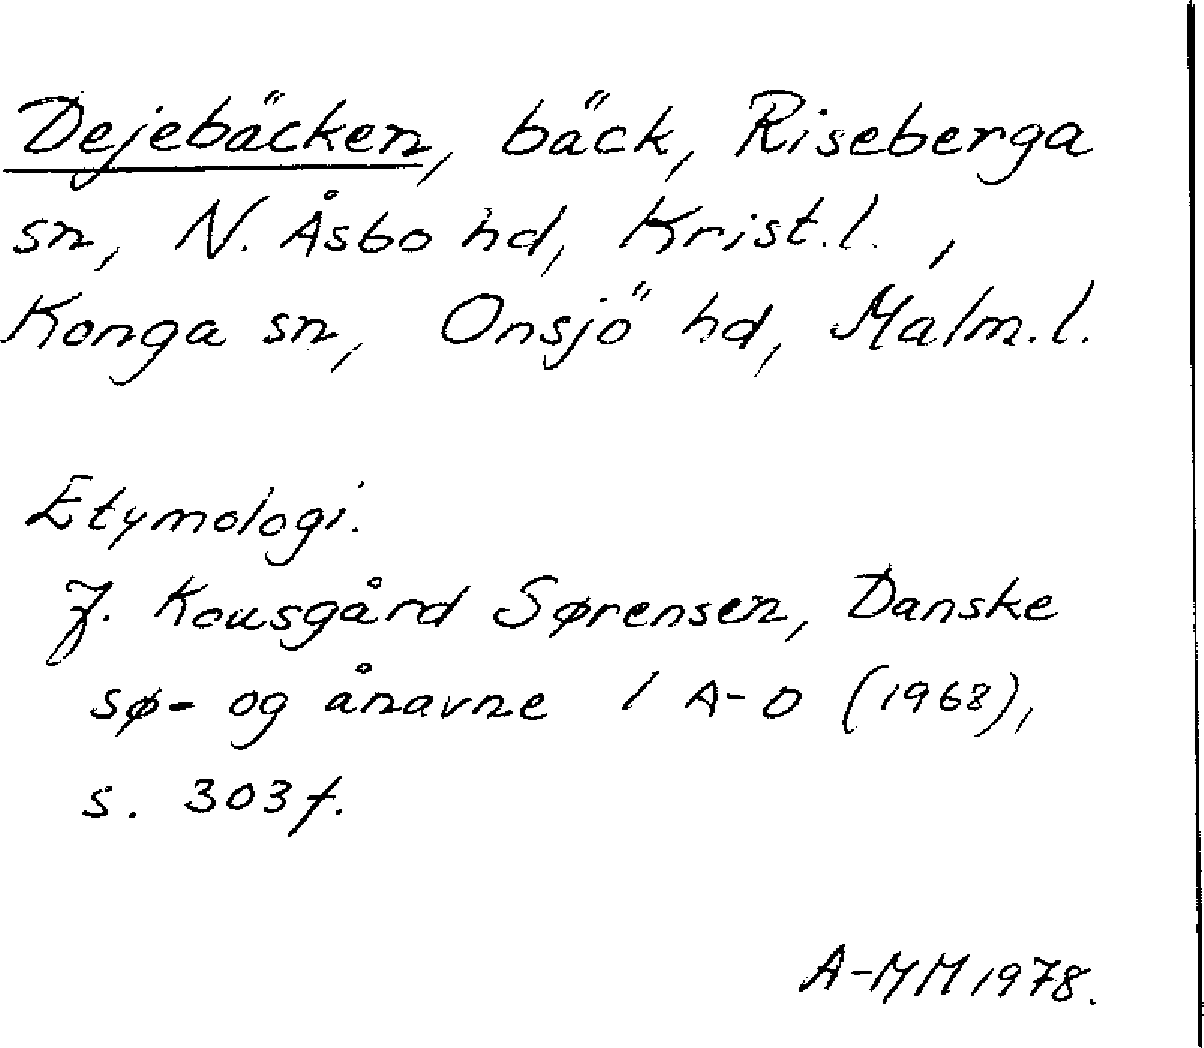 Dejebäcken, bäck, Riseberga
sn, N. Åsbo hd, Krist.l.,
Konga sn, Onsjö hd, Malm.l.
Etymologi.
J. Kousgård Sørensen, Danske
sø- og ånavne 1 A-D (1968),
s. 303f.
A-MM 1978.